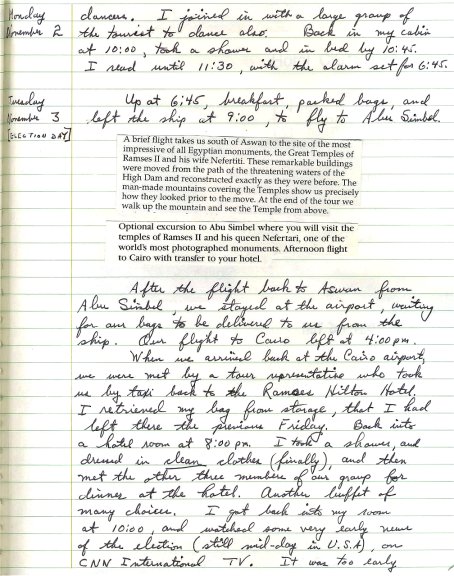 Monday
November 2
dances. I joined in with a large group of
the tourist to dance also. Back in my cabin
at 10:00, took a shower and in bed by 10:45.
I read until 11:30, with the alarm set for 6:45.
Tuesday
November 3
[ELECTION DAY]
Up at 6:45, breakfast, packed bags, and
left the ship at 9:00, to fly to Abu Simbel.
A brief flight takes us south of Aswan to the site of the most
impressive of all Egyptian monuments, the Great Temples of
Ramses II and his wife Nefertiti. These remarkable buildings
were moved from the path of the threatening waters of the
High Dam and reconstructed exactly as they were before. The
man-made mountains covering the Temples show us precisely
how they looked prior to the move. At the end of the tour we
walk up the mountain and see the Temple from above.
Optional excursion to Abu Simbel where you will visit the
temples of Ramses II and his queen Nefertari, one of the
world's most photographed monuments. Afternoon flight
to Cairo with transfer to your hotel.
After the flight back to Aswan from
Abu Simbel, we stayed at the airport, waiting
for our bags to be delivered to us from the
ship. Our flight to Cairo left at 4:00 pm.
When we arrived back at the Cairo airport,
we were met by a tour representative who took
us by taxi back to the Ramses Hilton Hotel.
I retrieved my bag from storage, that I had
left there the previous Friday. Back into
a hotel room at 8:00 pm. I took a shower, and
dressed in clean clothes (finally), and then
met the other three members of our group for
dinner at the hotel. Another buffet of
many choices. I got back into my room
at 10:00, and watched some very early news
of the election (still mid-day in U.S.A), on
CNN International TV. It was too early